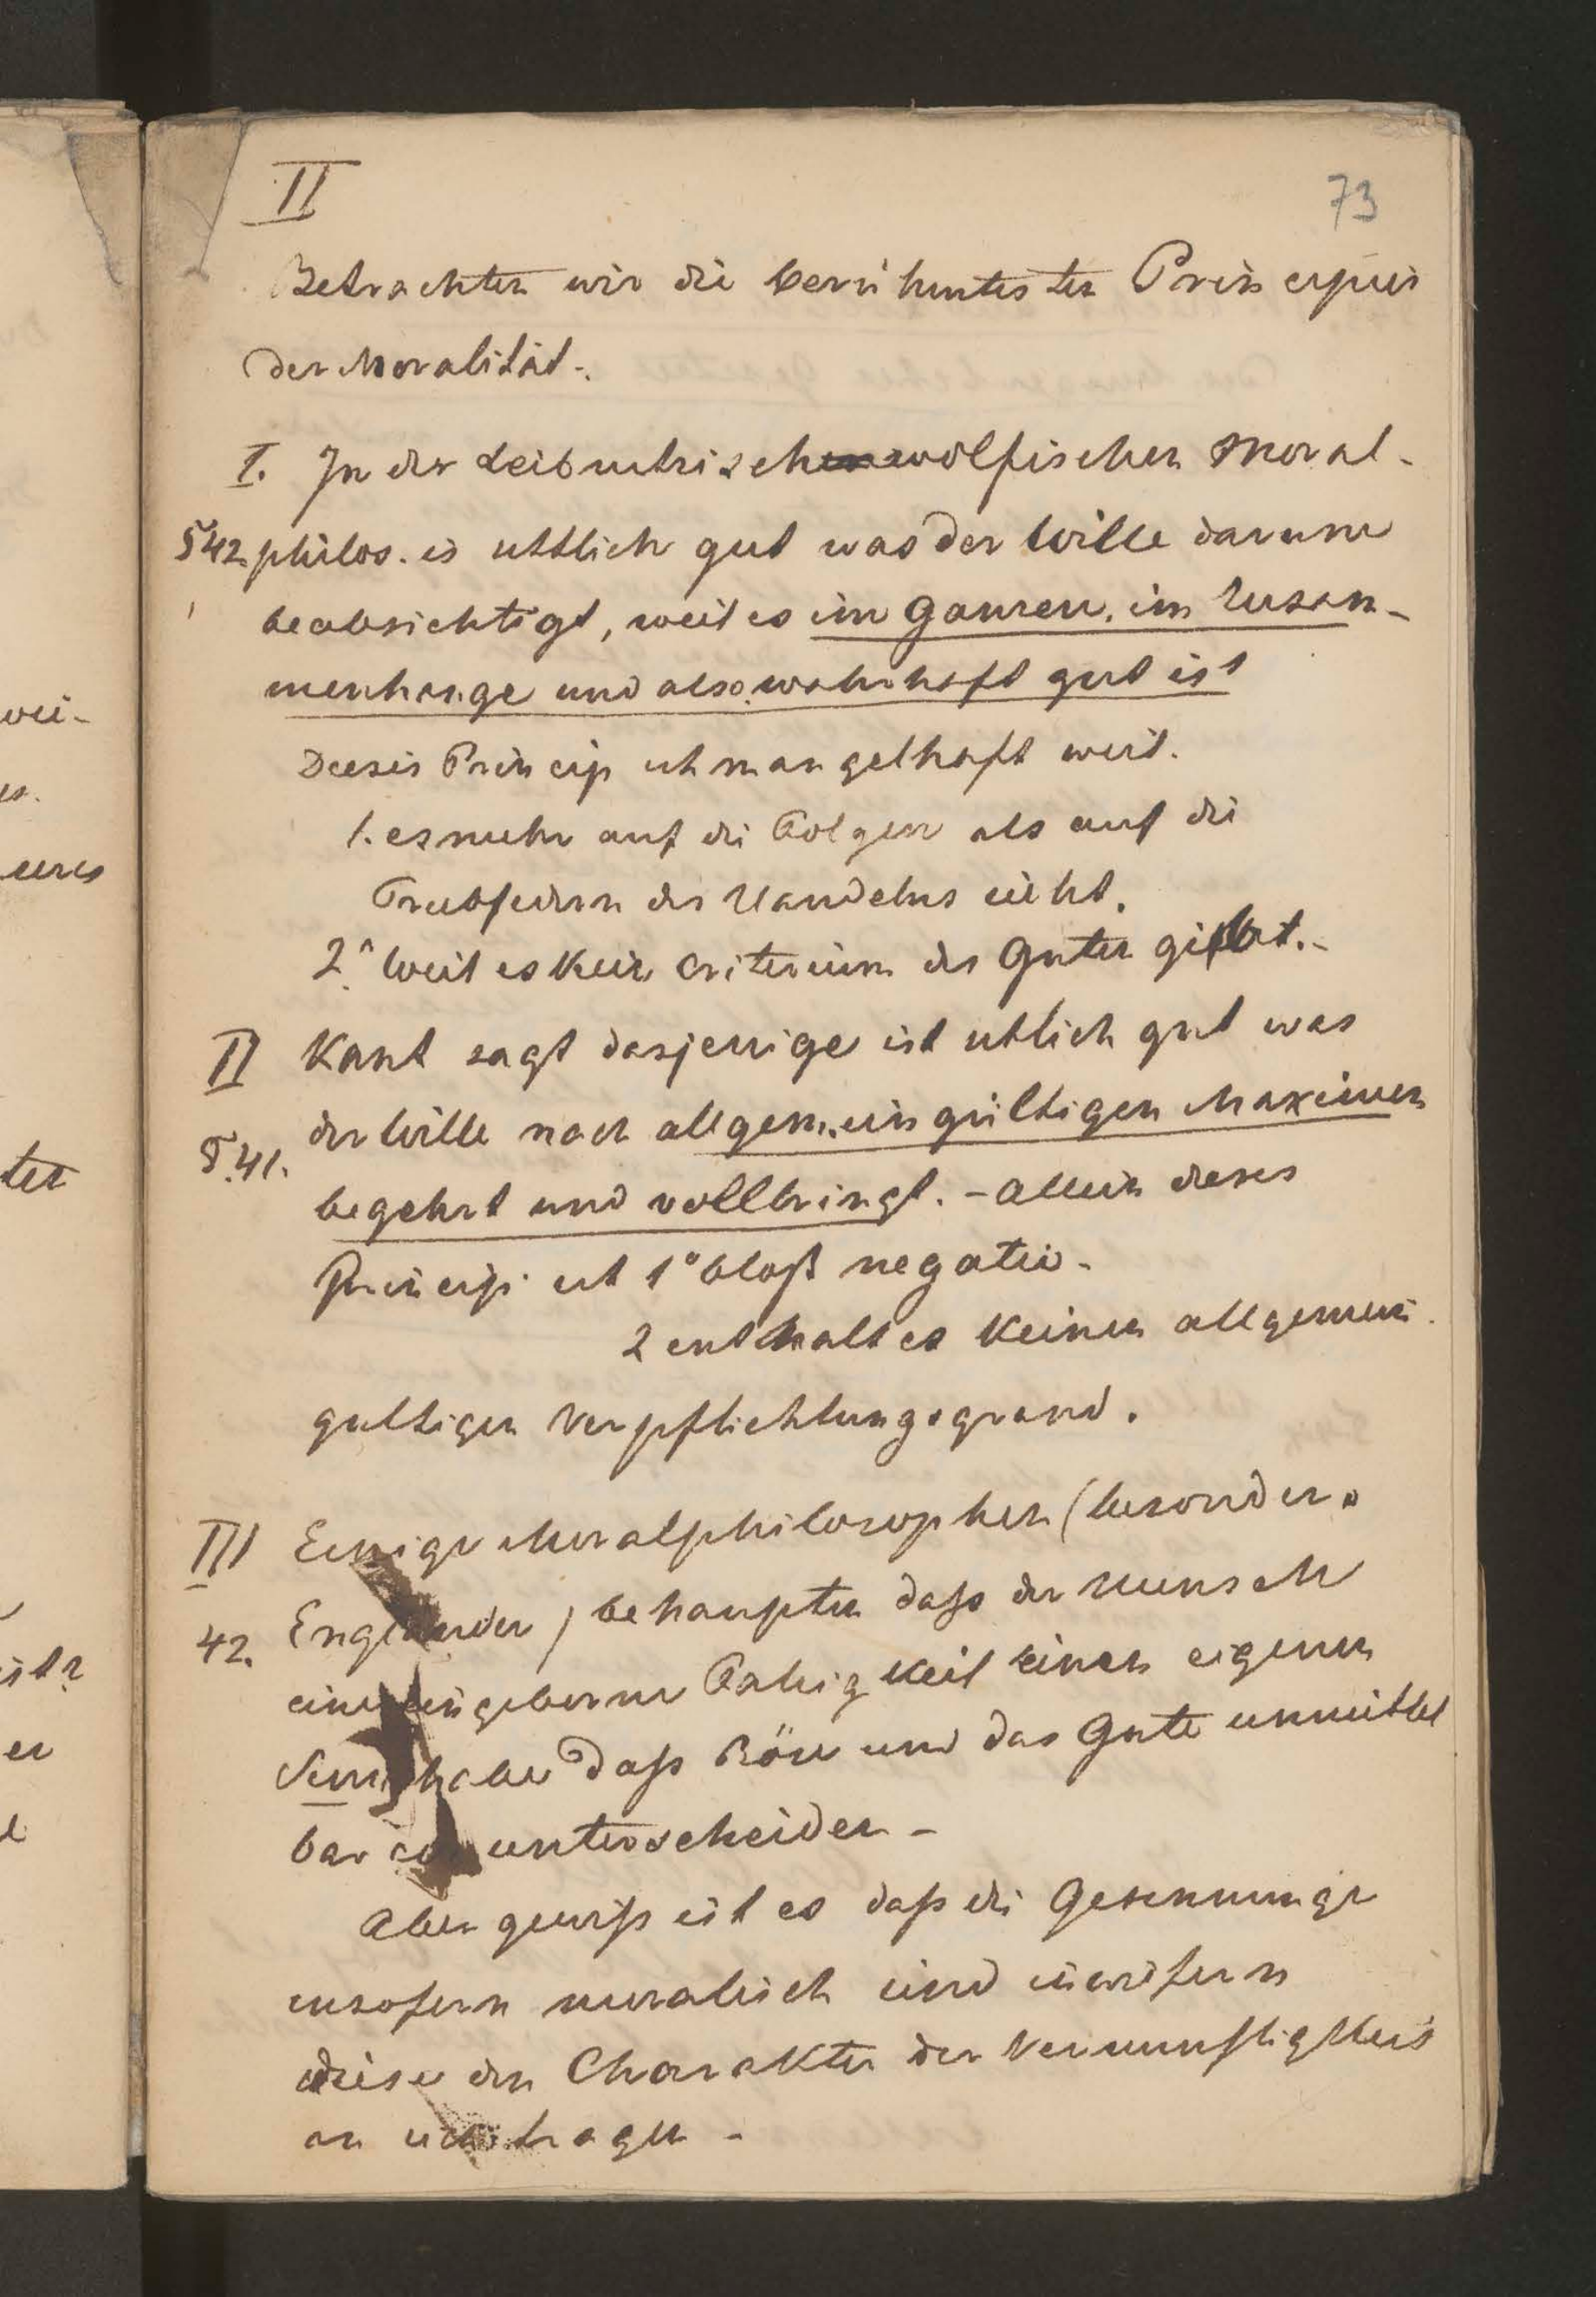 II
73
Betrachten wir die berühmtesten Principien
der Moralität.
I. In der Leibnitzisch wolfischen Moral-
§42. philos. is sittlich gut was der Wille darum
beabsichtigt, weil es im Ganzen, im Zusam-
menhange und also wahrhaft gut ist
Dieses Princip ist mangelhaft weil.
1. es mehr auf die Folgen als auf die
Triebfedern des Handelns sieht.
2° Weil es kein Criterium des Guten gibt.-
II Kant sagt dasjenige ist sittlich gut was
der Wille nach allgemein gültigen Maximen
§.41.
begehrt und vollbringt. - Allein dieses
Princip ist 1° bloß negativ -
2 enthalt es keinen allgemein
gultigen Verpflichtungsgrund.
III Einige Moralphilosophen (besonders
42. Englander) behaupten daß der Mensch
eine eingeborne Fahigkeit einen eigenen
Sinn habe daß Böse und das Gute unmittel
bar zu unterscheiden -
Aber gewiß ist es daß die Gesinnunge
insofern moralisch sind inwifern
diese den Charakter der Vernunftigkeit
an sich tragen -
wei-
es.
ieres
ten
ist?
er
l